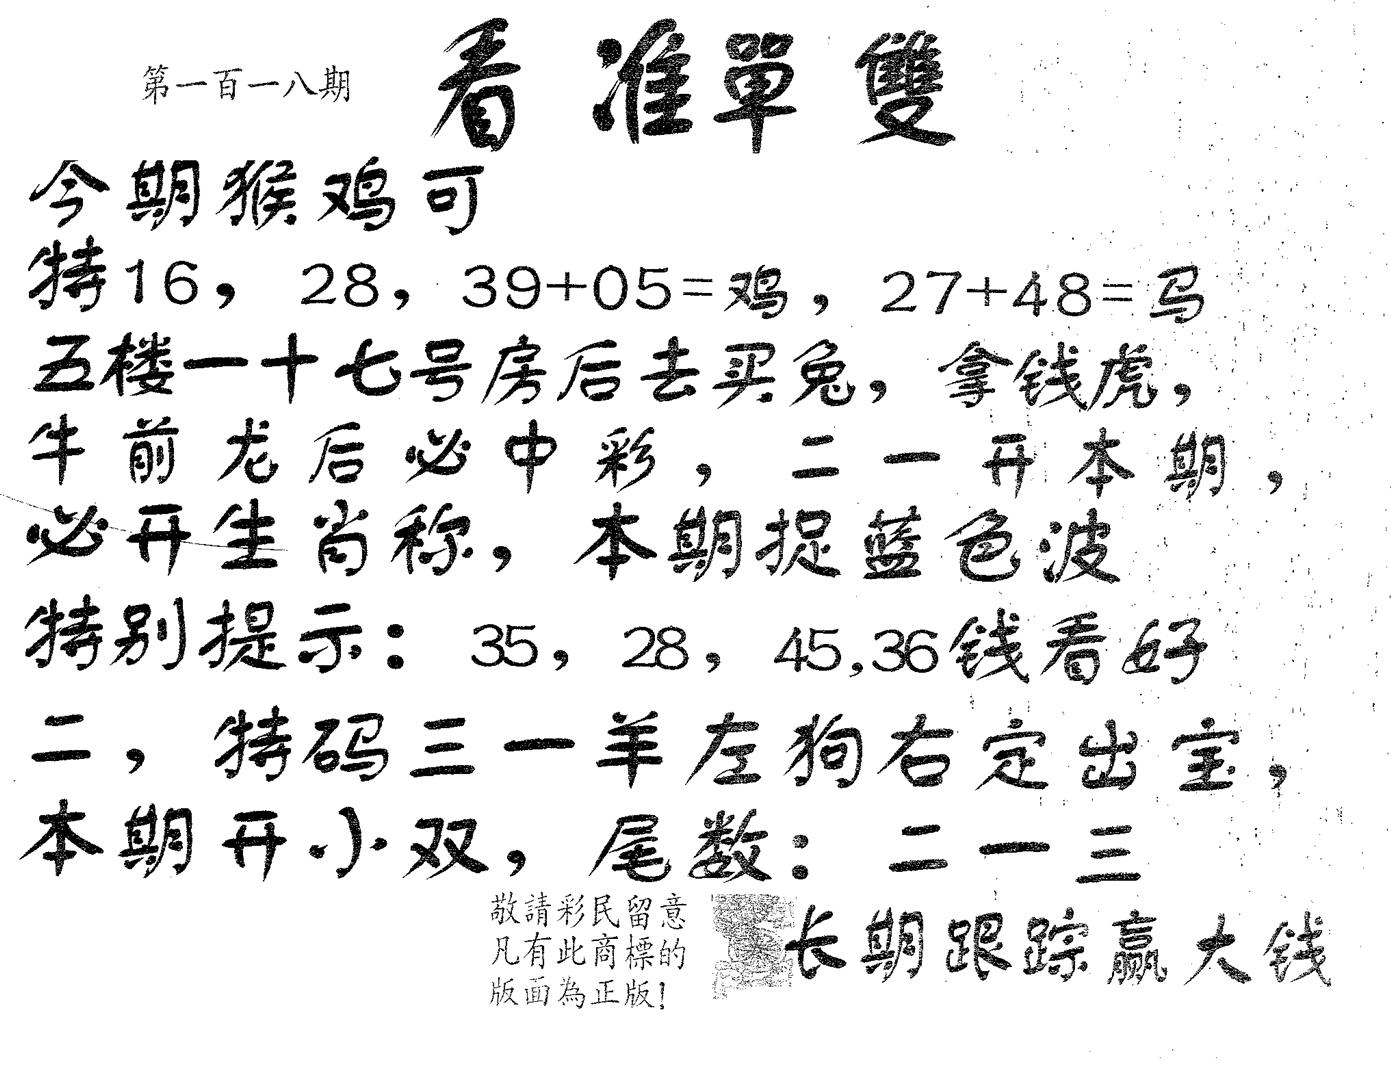 第一百一八期
看准單雙
今期猴鸡可
特16，28，39+05=鸡，27+48=马
五楼一十七号房后去买兔，拿钱虎，
牛前龙后必中彩，二一开本期，
必开生肖称，本期捉蓝色波
特别提示：35，28，45,36钱看好
二，特码三一羊左狗右定出宝，
本期开小双，尾数：二一三
敬請彩民留意
凡有此商標的
版面為正版！
长期跟踪赢大钱